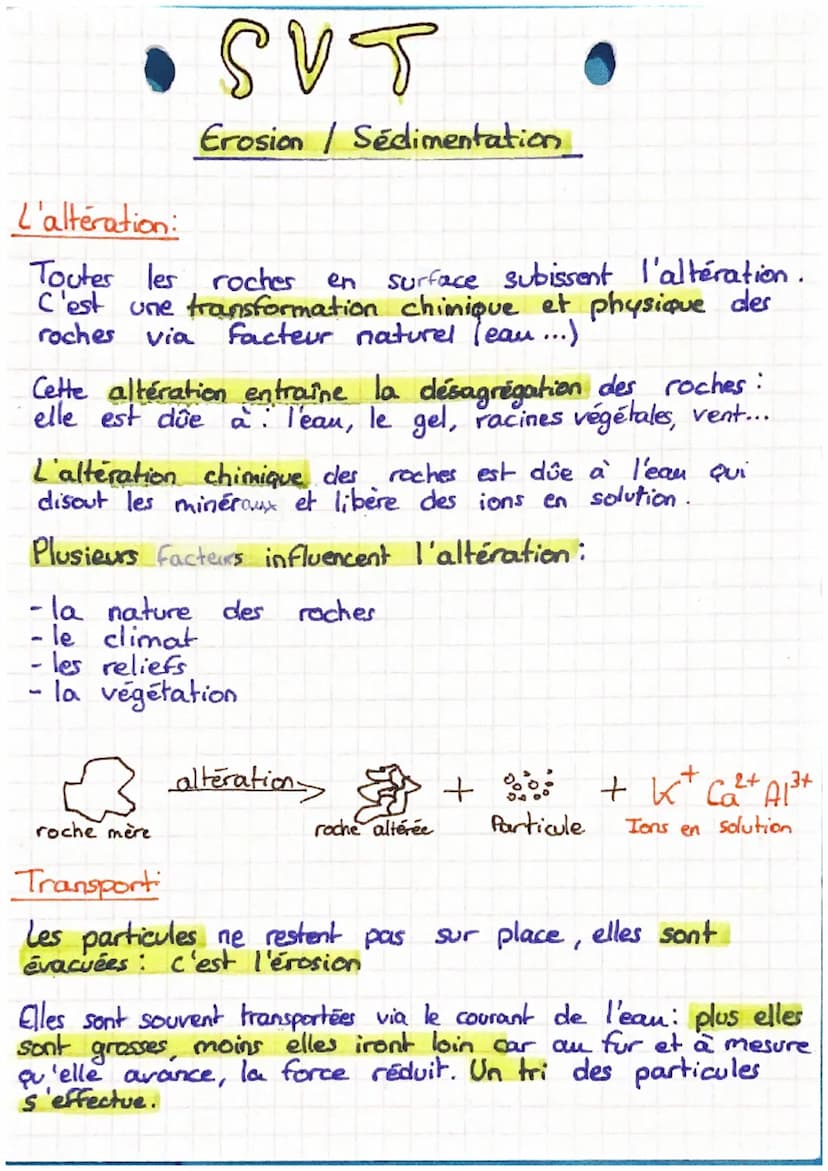 SVT
Erosion / Sédimentation
L'altération:
Toutes les roches en surface subissent l'altération.
C'est une transformation chimique et physique des
roches via facteur naturel (eau...)
Cette altération entraîne la désagrégation des roches:
elle est dûe à: l'eau, le gel, racines végétales, vent...
L'altération chimique des roches est dûe à l'eau qui
disout les minéraux et libère des ions en solution.
Plusieurs facteurs influencent l'altération:
- la nature des roches
- le climat
- les reliefs
- la végétation
altération
+ + K+ Ca2+ Al3+
roche mère roche altérée Particule Ions en solution
Transport:
Les particules ne restent pas sur place, elles sont
évacuées: c'est l'érosion
Elles sont souvent transportées via le courant de l'eau: plus elles
sont grosses, moins elles iront loin car au fur et à mesure
qu'elle avance, la force réduit. Un tri des particules
s'effectue.